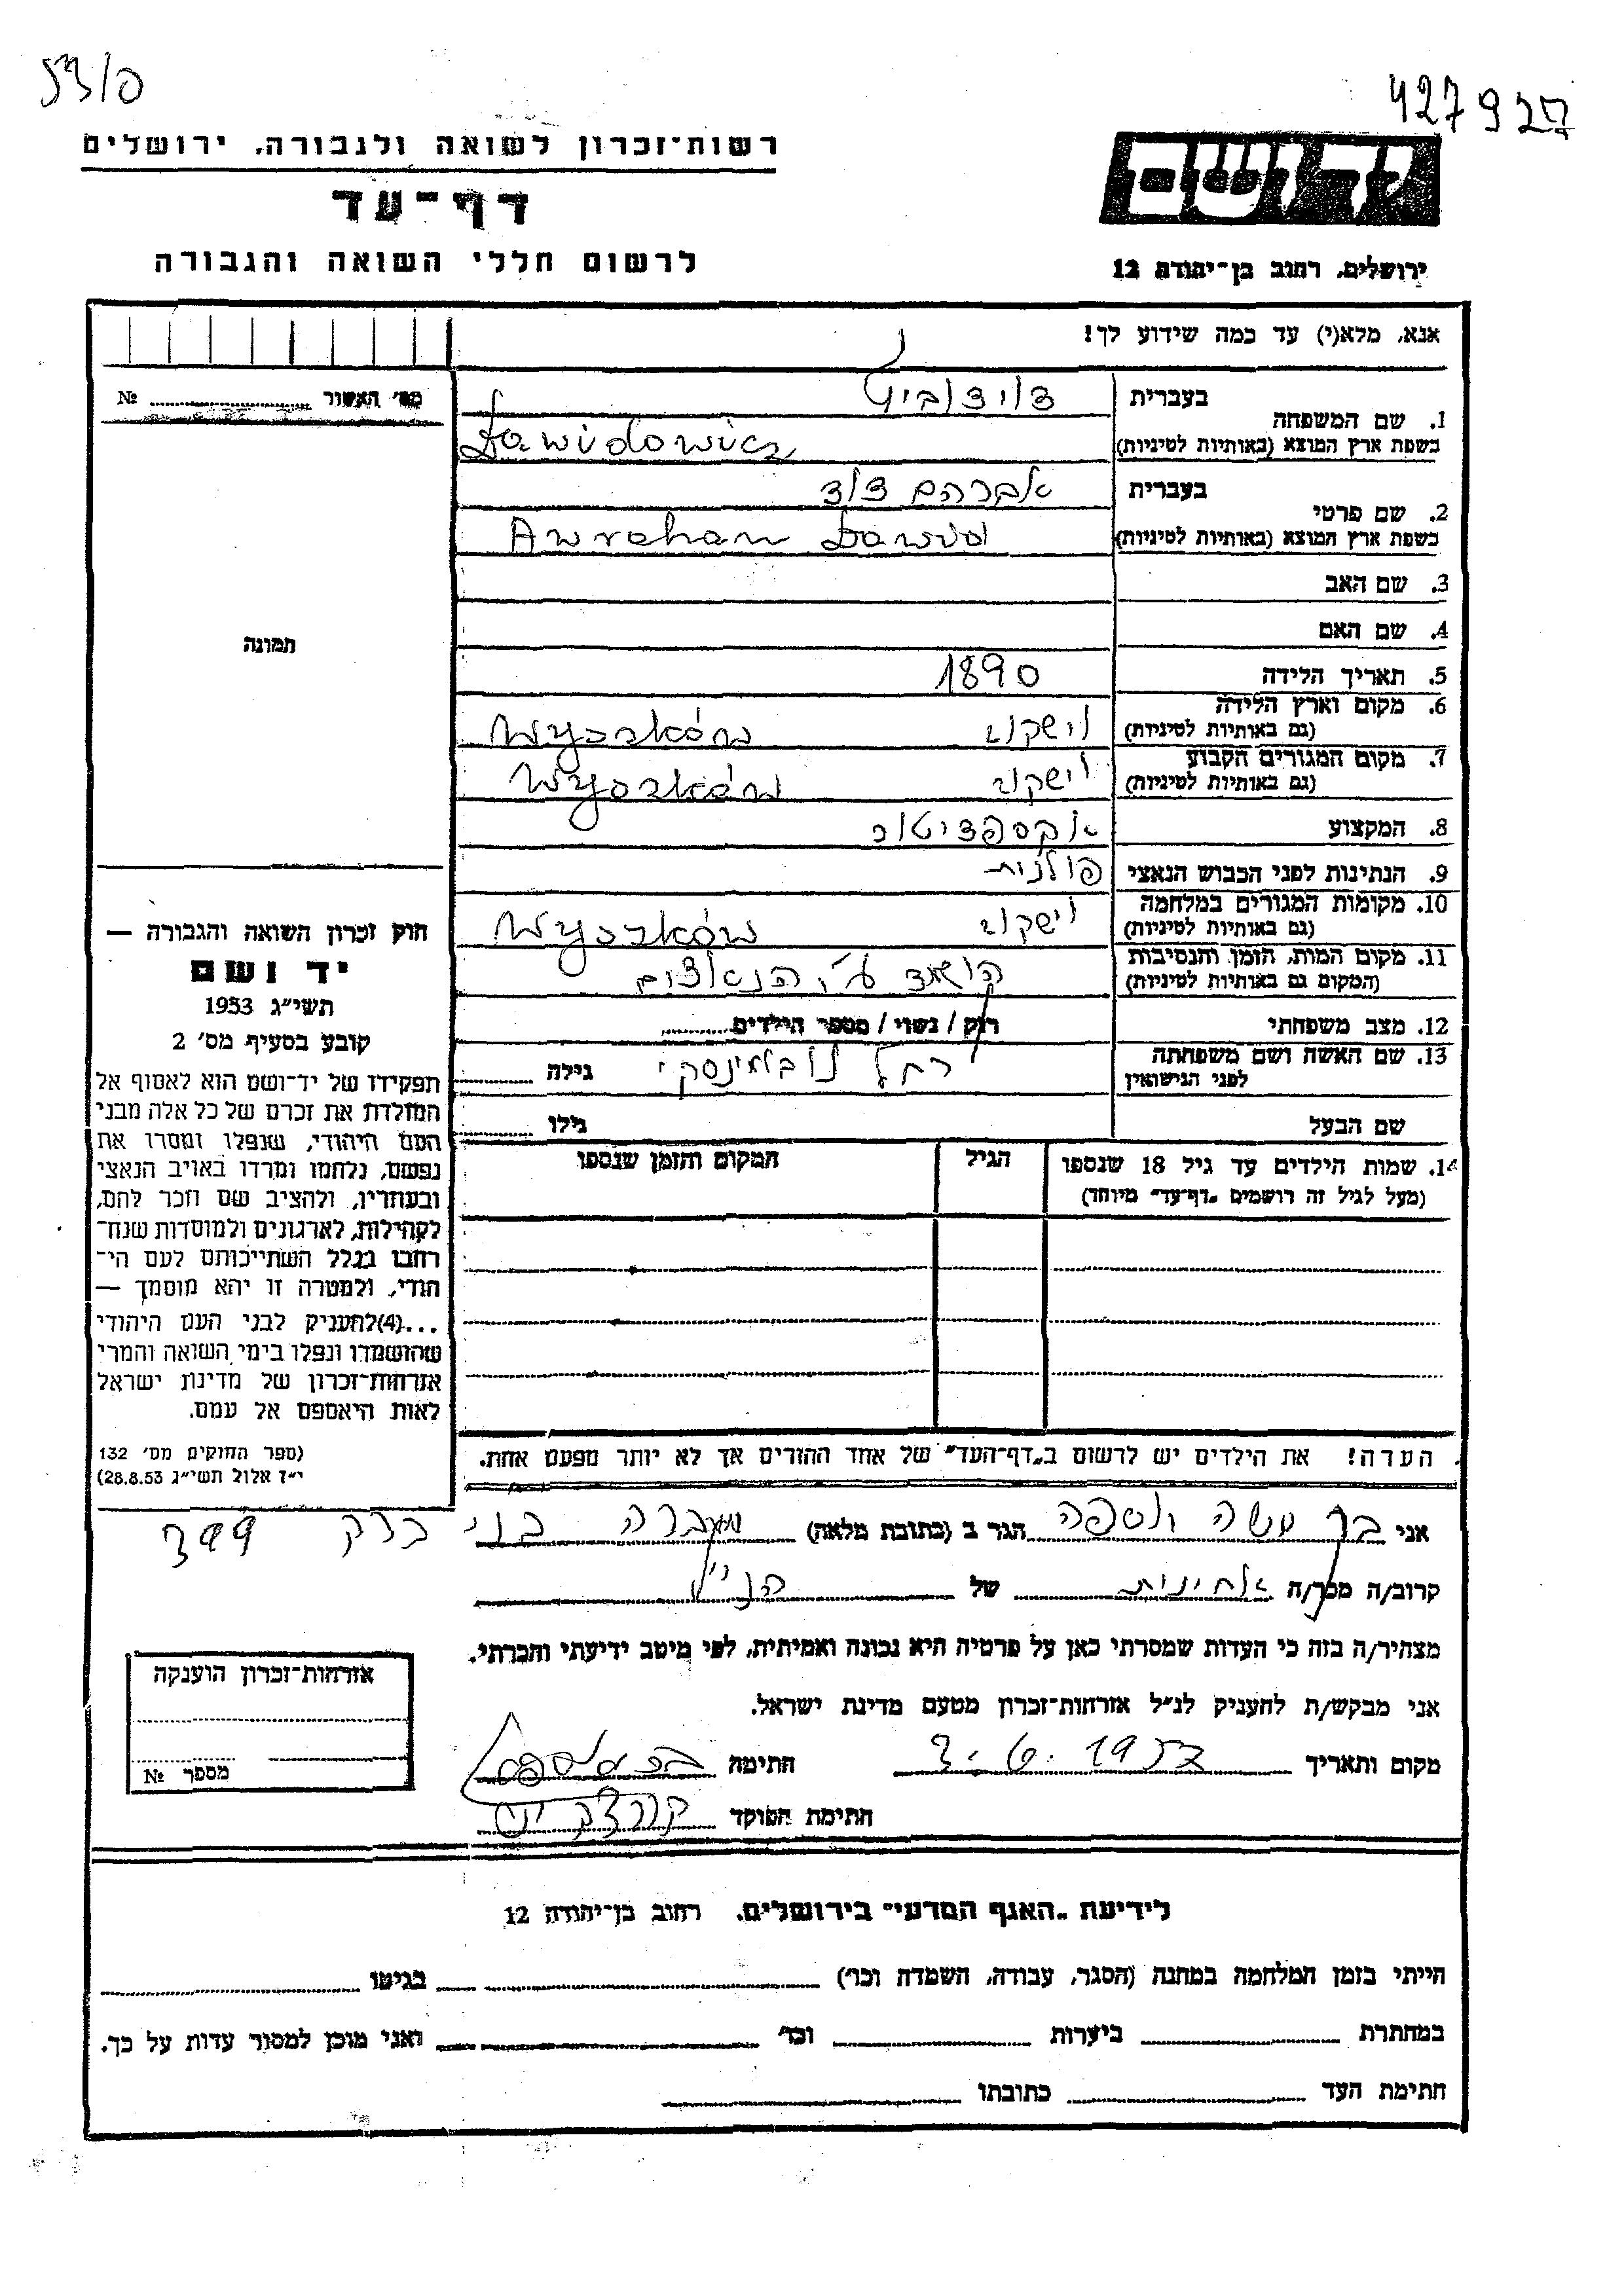 427927
רשות־זכרון לשואה ולגבורה, ירושלים
דף־עד
לרשום חללי השואה והגבורה
יד ושם
ירושלים, רחוב בן־יהודה 12
אנא, מלא(י) עד כמה שידוע לך!
מס׳ האשור № 
תמונה
1. שם המשפחה בעברית דוידוביץ
בשפת ארץ המוצא (באותיות לטיניות) Dawidowicz
2. שם פרטי בעברית אברהם דוד
בשפת ארץ המוצא (באותיות לטיניות) Awraham Dawid
3. שם האב
4. שם האם
5. תאריך הלידה 1890
6. מקום וארץ הלידה (גם באותיות לטיניות) וישקוב Wyszków
7. מקום המגורים הקבוע (גם באותיות לטיניות) וישקוב Wyszków
8. המקצוע אקספדיטור
9. הנתינות לפני הכבוש הנאצי פולנית
10. מקומות המגורים במלחמה (גם באותיות לטיניות) וישקוב Wyszków
11. מקום המות, הזמן והנסיבות (המקום גם באותיות לטיניות) הושמד ע״י הנאצים
12. מצב משפחתי רוק / נשוי / מספר הילדים
13. שם האשה ושם משפחתה לפני הנישואין רחל גילה
שם הבעל גילו
14. שמות הילדים עד גיל 18 שנספו הגיל המקום והזמן שנספו
(מעל לגיל זה רושמים „דף־עד״ מיוחד)
חוק זכרון השואה והגבורה —
יד ושם
תשי״ג 1953
קובע בסעיף מס׳ 2
תפקידו של יד־ושם הוא לאסוף אל
המולדת את זכרם של כל אלה מבני
העם היהודי, שנפלו ומסרו את
נפשם, נלחמו ומרדו באויב הנאצי
ובעוזריו, ולהציב שם וזכר להם,
לקהילות, לארגונים ולמוסדות שנח־
רחבו בגלל השתייכותם לעם הי־
הודי, ולמטרה זו יהא מוסמך —
...(4)להעניק לבני העם היהודי
שהושמדו ונפלו בימי השואה והמרי
אזרחות־זכרון של מדינת ישראל
לאות היאספם אל עמם.
(ספר החוקים מס׳ 132
י״ז אלול תשי״ג 28.8.53)
הערה! את הילדים יש לרשום ב„דף־העד״ של אחד ההורים אך לא יותר מפעם אחת.
אני הגר ב (כתובת מלאה) מעברה בני ברק 399
קרוב/ה מכר/ה אחינית של הנ״ל
מצהיר/ה בזה כי העדות שמסרתי כאן על פרטיה היא נכונה ואמיתית, לפי מיטב ידיעתי והכרתי.
אני מבקש/ת להעניק לנ״ל אזרחות־זכרון מטעם מדינת ישראל.
מקום ותאריך 3.6.1957 חתימה
חתימת הפוקד
אזרחות־זכרון הוענקה
מספר №
לידיעת „האגף המדעי״ בירושלים, רחוב בן־יהודה 12
הייתי בזמן המלחמה במחנה (הסגר, עבודה, השמדה וכר׳) בגיטו
במחתרת ביערות וכר׳ ואני מוכן למסור עדות על כך.
חתימת העד כתובתו